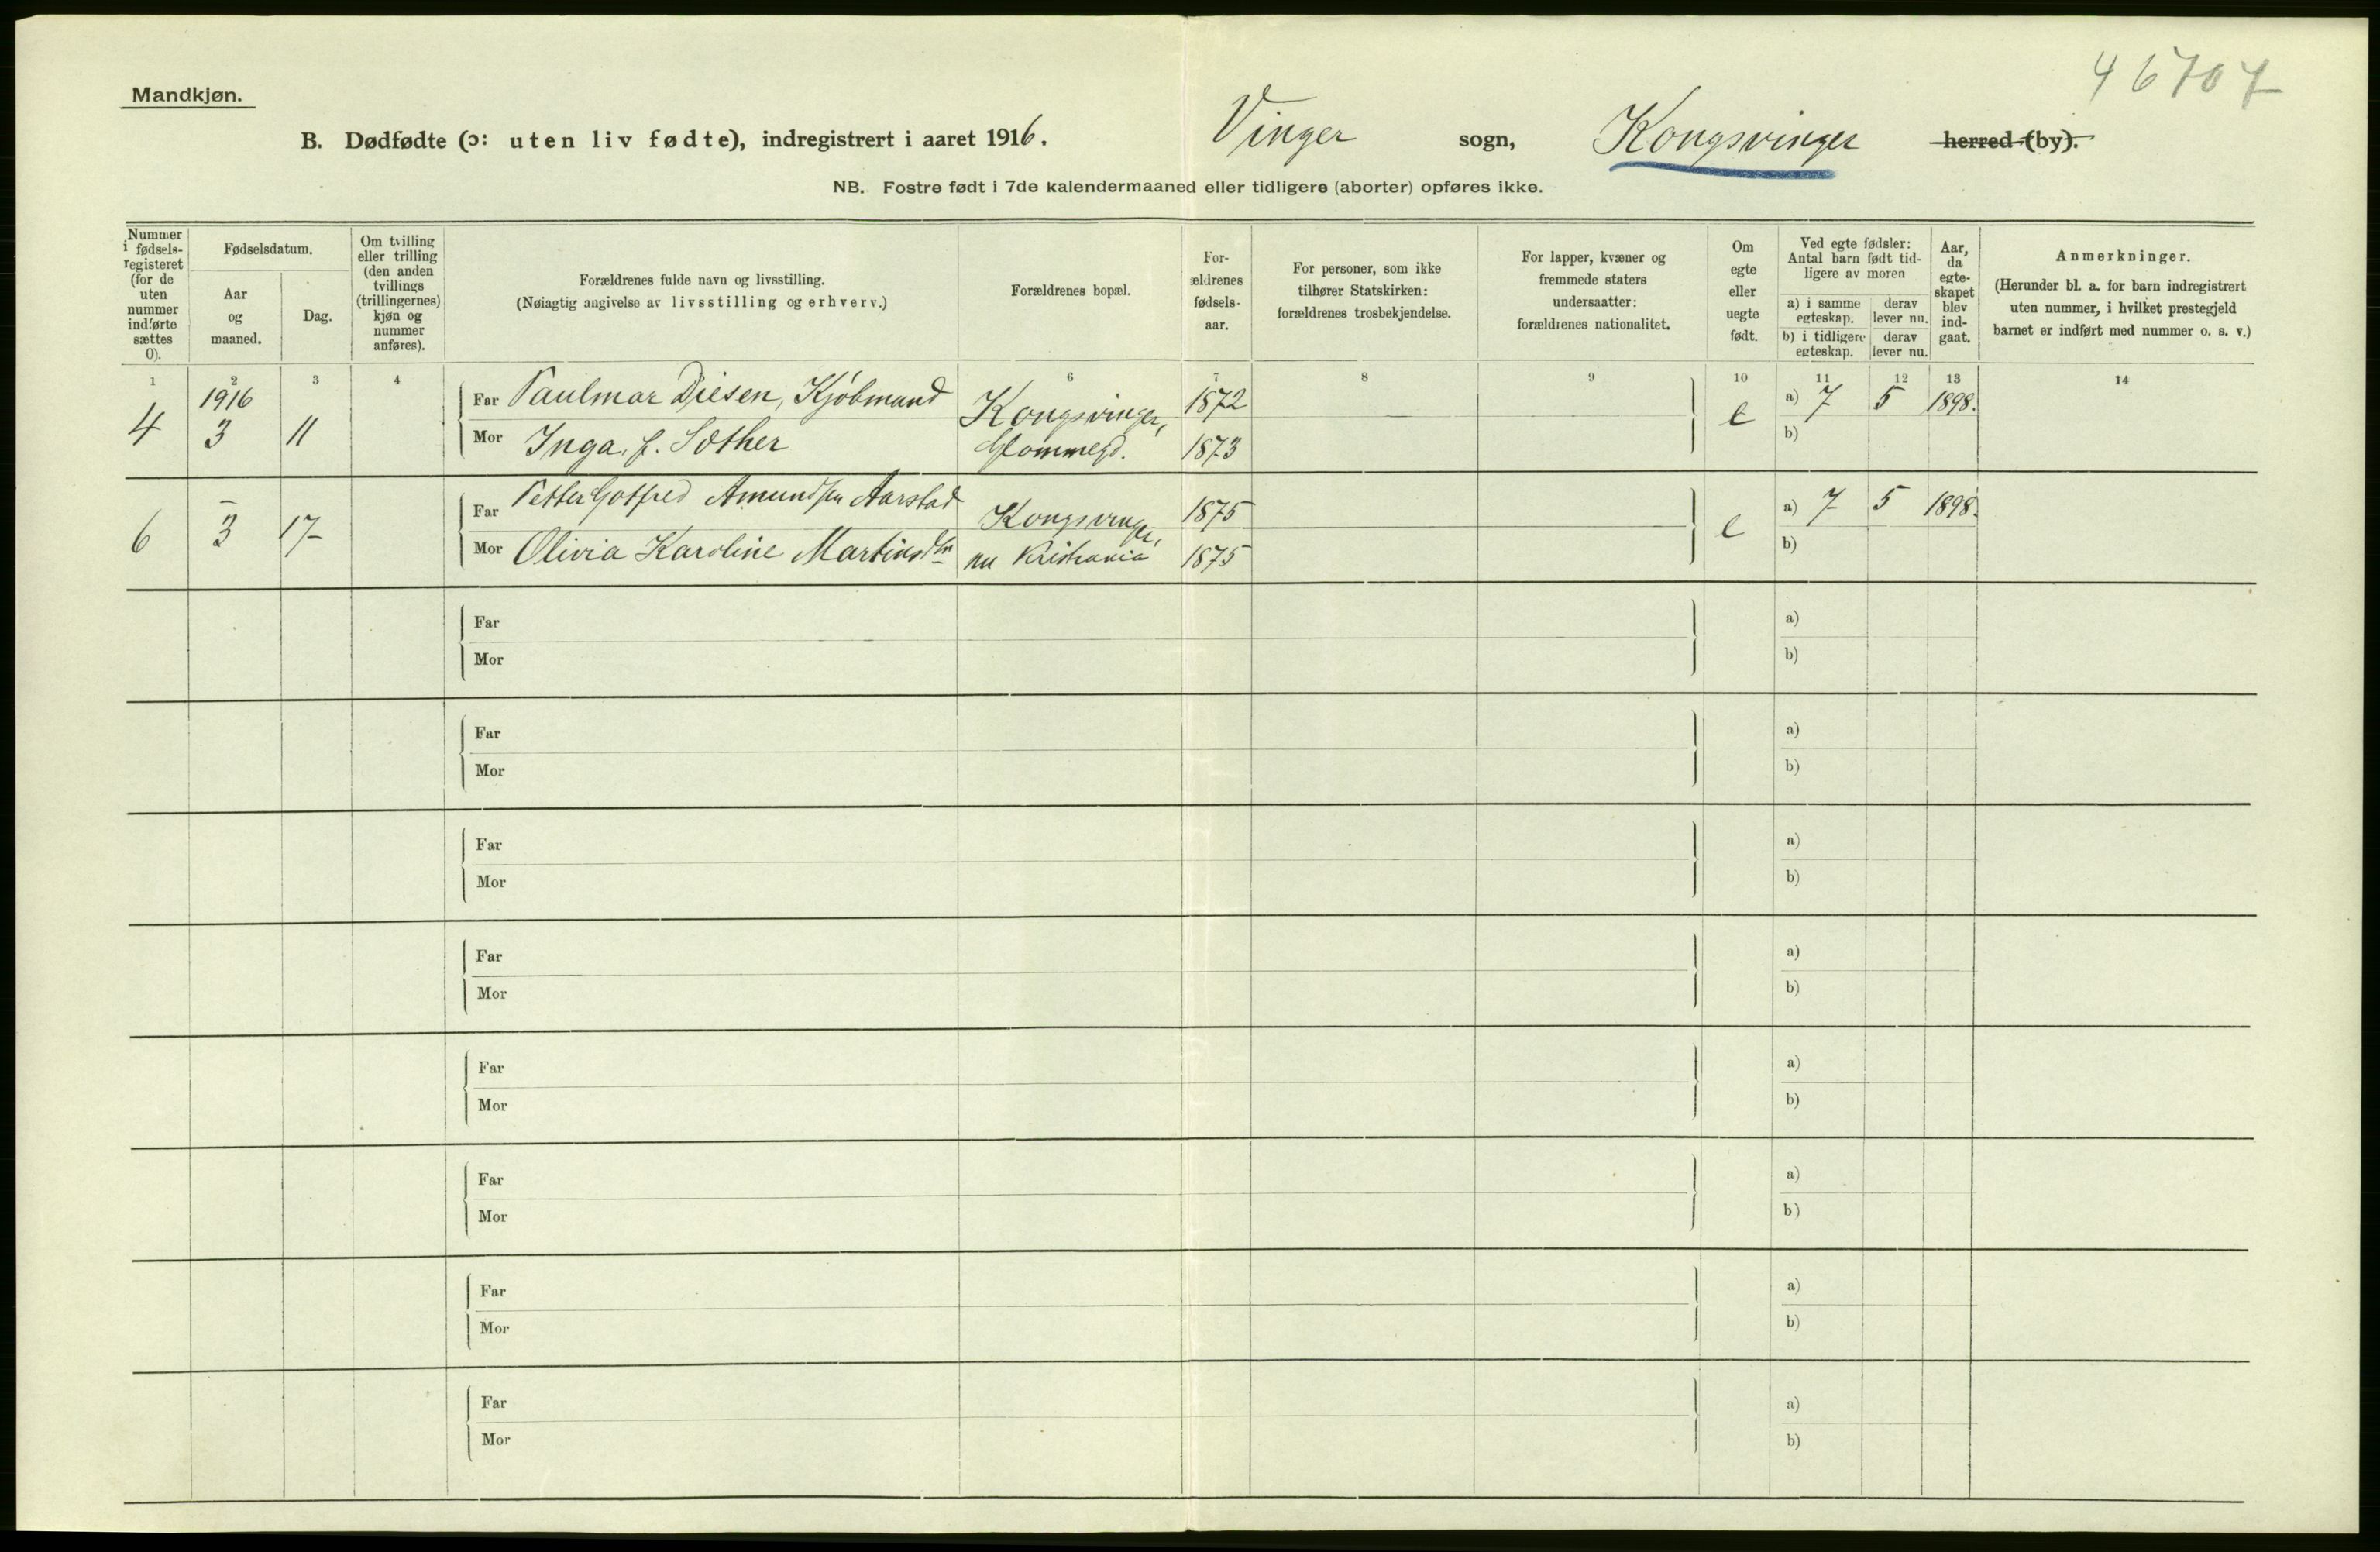 46707
Mandkjøn.
B. Dødfødte (ɔ: uten liv fødte), indregistrert i aaret 1916. Vinger sogn, Kongsvinger herred (by).
NB. Fostre født i 7de kalendermaaned eller tidligere (aborter) opføres ikke.
Nummer i fødsels-registeret (for de uten nummer indførte sættes 0).
Fødselsdatum.
Aar og maaned.
Dag.
Om tvilling eller trilling (den anden tvillings (trillingernes) kjøn og nummer anføres).
Forældrenes fulde navn og livsstilling.
(Nøiagtig angivelse av livsstilling og erhverv.)
Forældrenes bopæl.
For-ældrenes fødsels-aar.
For personer, som ikke tilhører Statskirken: forældrenes trosbekjendelse.
For lapper, kvæner og fremmede staters undersaatter: forældrenes nationalitet.
Om egte eller uegte født.
Ved egte fødsler: Antal barn født tid-ligere av moren
a) i samme egteskap.
derav lever nu.
b) i tidligere egteskap.
derav lever nu.
Aar, da egte-skapet blev ind-gaat.
Anmerkninger.
(Herunder bl. a. for barn indregistrert uten nummer, i hvilket prestegjeld barnet er indført med nummer o. s. v.)
1 2 3 4 6 7 8 9 10 11 12 13 14
4 1916 3 11 Far Paulmar Diesen, Kjøbmand Kongsvinger, 1872 e a) 7 5 1898.
Mor Inga, f. Sæther Glommegd. 1873 b)
6 – 3 17 Far Petter Gotfred Amundsen Aarstad Kongsvinger, 1875 e a) 7 5 1898.
Mor Olivia Karoline Martinsdtr nu Kristiania 1875 b)
Far a)
Mor b)
Far a)
Mor b)
Far a)
Mor b)
Far a)
Mor b)
Far a)
Mor b)
Far a)
Mor b)
Far a)
Mor b)
Far a)
Mor b)